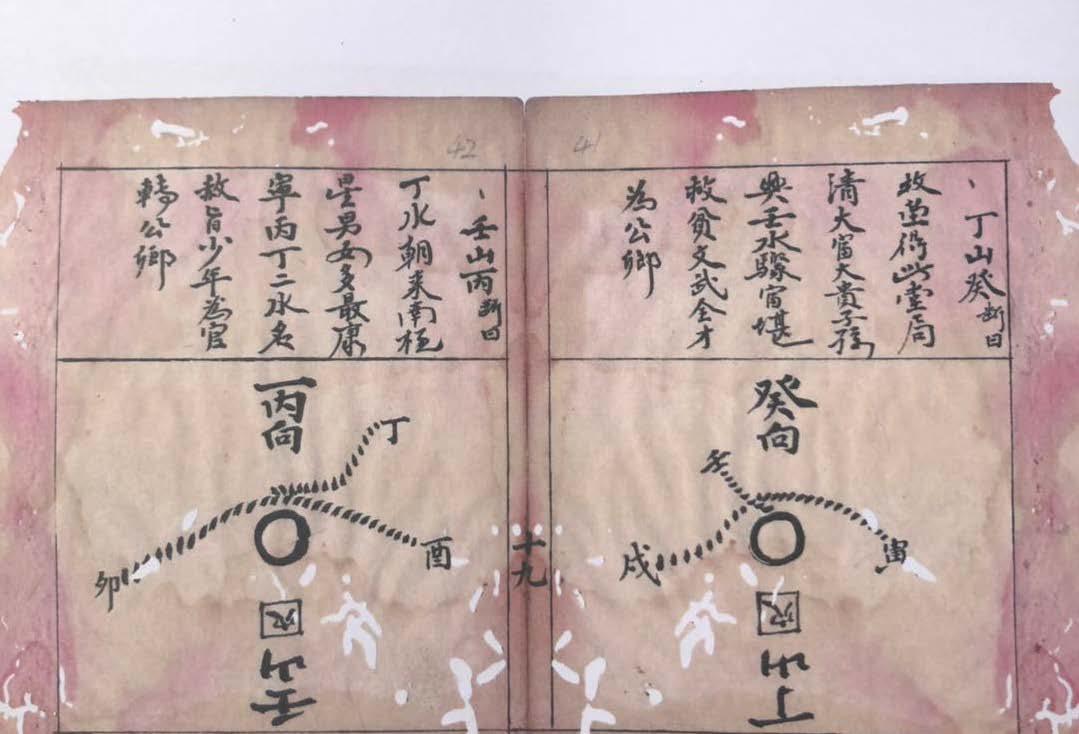 41
丁山癸断曰
得此堂局
清大富大貴子孫
興壬水驟寅堪
救貧文武全才
為公鄉
癸向
壬
戌
寅
穴
丁山
十九
42
壬山丙断曰
丁水朝来南極
星男女多最康
寧丙丁二水名
赦旨少年為官
轉公鄉
丙向
丁
酉
卯
穴
壬山